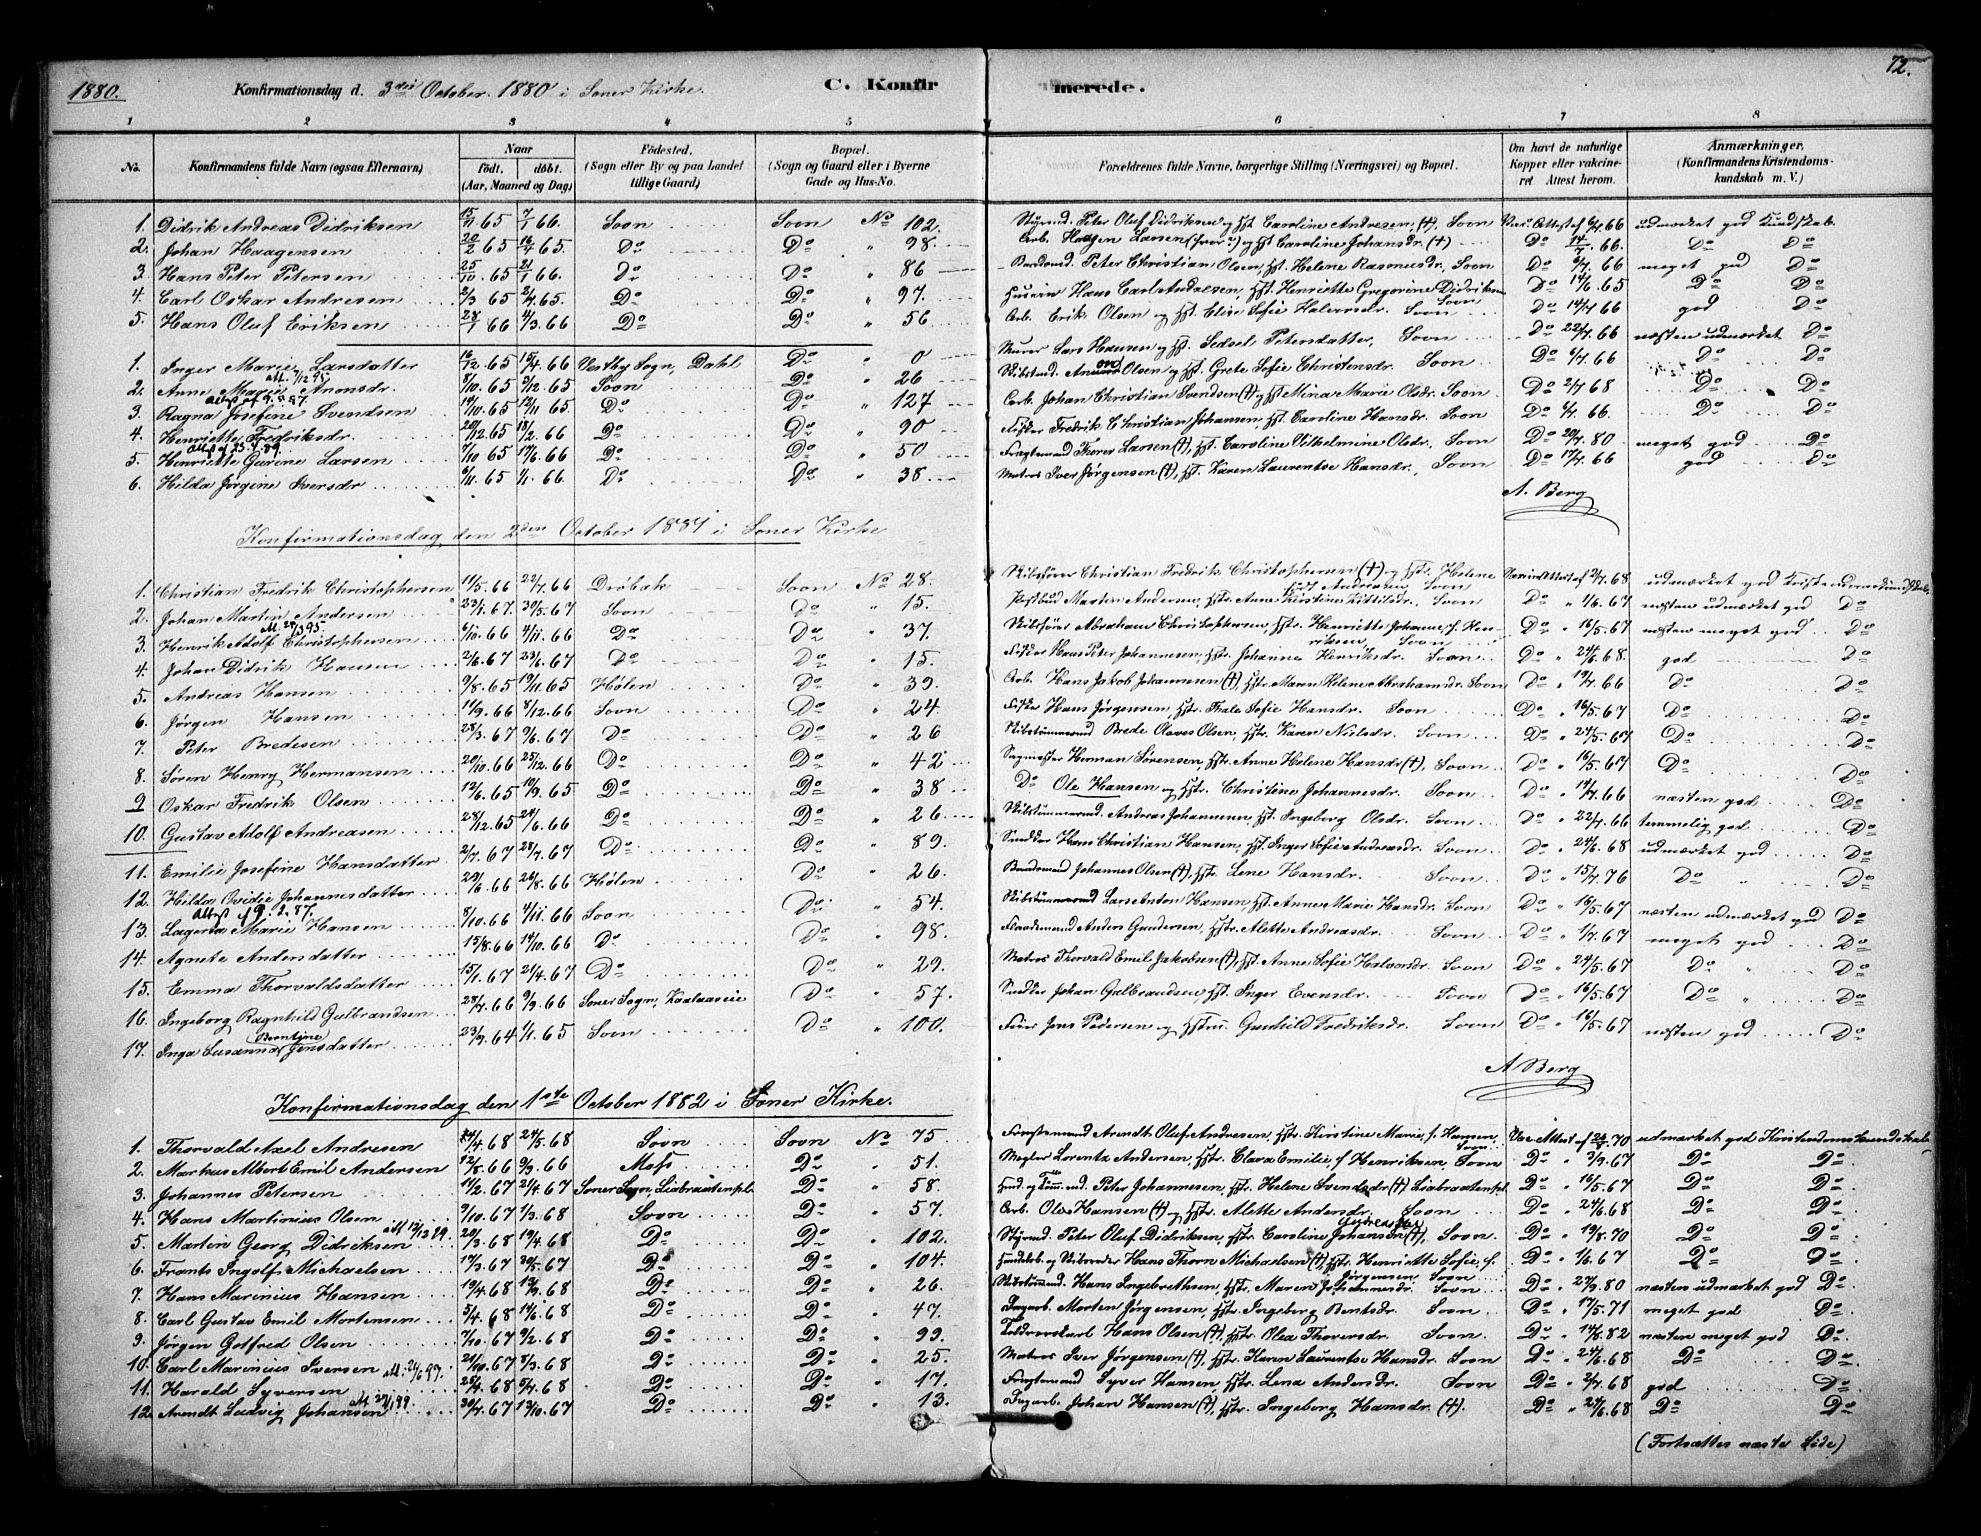 1880.
Konfirmationsdag d. 3die October 1880 i Soner Kirke.
C. Konfirmerede.
72.
1 2 3 4 5 6 7 8
No. Konfirmandens fulde Navn (ogsaa Efternavn) Naar født. døbt. (Aar, Maaned og Dag) Fødested. (Sogn eller By og paa Landet tillige Gaard) Bopæl. (Sogn og Gaard eller i Byerne Gade og Hus-No. Forældrenes fulde Navne, borgerlige Stilling (Næringsvei) og Bopæl. Om havt de naturlige Kopper eller vakcineret. Attest herom. Anmærkninger. (Konfirmandens Kristendomskundskab m. V.)
1. Didrik Andreas Didriksen 15/11 65 7/1 66. Soon Soon No 102. Styrmd. Peter Oluf Didriksen og Hst. Caroline Andresen (†), Soon Vac. Attest af 6/7 66 udmærket god Kundskab
2. Johan Haagensen 20/2 65 16/4 65. Do Do " 98. Arb. Haagen Larsen og Hst Caroline Johansdr. (†) Do 14/7 66. Do Do
3. Hans Peter Petersen 25/10 65 21/1 66. Do Do " 86 Peter Christian Olsen, Hst. Helene Rasmusdr., Soon Do 6/7 66 meget god Do
4. Carl Oskar Andresen 2/3 65 2/4 65. Do Do " 97. Hans Carl Andresen, Hst. Henriette Gregorine Didriksen Soon Do 14/6 65 Do Do
5. Hans Oluf Eriksen 28/1 66 4/3 66 Do Do " 56 Arb. Erik Olsen og Hst. Elise Sofie Halvorsdr. Soon Do 14/7 66 god Do
1. Inger Marie Larsdatter 16/12 65 15/4 66 Vestby Sogn, Dahl Do " 0 Murer Lars Hansen og Hst. Sedsel Petersdatter, Soon Do 22/7 66 næsten udmærket Do
2. Anne Marie Amonsdr. att. 7/12 95 8/10 65 9/12 65 Soon Do " 26 Skibstmd. Amund Olsen og Hst. Grete Sofie Christensdr. Soon Do 6/7 66 Do Do
3. Ragna Josefine Svendsen 14/10 65 12/11 65. Do Do " 127 Arb. Johan Christian Svendsen (†) og Hst Mina Marie Olsdr. Soon Do 2/7 68 Do Do
4. Henriette Fredriksdr. 20/12 65 18/2 66 Do Do " 90 Fisker Fredrik Christian Johansen, Hst. Caroline Hansdr. Soon Do 6/7 66. Do Do
5. Henriette Gurine Larsen 7/10 65 17/6 66 Do Do " 50 Fragtemand Thorer Larsen (†), Hst. Caroline Vilhelmine Olsdr. Soon Do 20/7 80 meget god Do
6. Hilda Jørgine Iversdr 6/11 65 1/1 66. Do Do " 38 Matros Iver Jørgensen (†), Hst. Karen Laurentse Hansdr., Soon Do 17/7 66 god Do
A. Berg
Konfirmationsdag den 2den October 1881 i Soner Kirke
1. Christian Fredrik Christophersen 11/5 66 22/7 66 Drøbak Soon No 28. Skibsfører Christian Fredrik Christophersen (†) og Hst. Helene Andreasen, Soon Vaccine Attest af 2/7 68 udmærket god Kristendomskundskab
2. Johan Martin Andersen 23/1 67 30/5 67 Soon Do " 15. Postbud Martin Andersen, Hstr. Anne Kirstine Kittilsdr., Soon Do " 1/6 67 næsten udmærket god Do
3. Henrik Adolf Christophersen 6/10 66 4/11 66 Do Do " 37. Skibsfører Abraham Christophersen, Hstr. Henriette Johanne, f. Henriksen, Soon Do " 16/5 67 næsten meget god Do
4. Johan Didrik Hansen 2/6 67 23/6 67 Do Do " 15. Fisker Hans Peter Johannesen, Hstr. Johanne Henriksdr. Soon Do " 24/6 68. god Do
5. Andreas Hansen 9/8 65 19/11 65 Hølen Do " 39. Arb. Hans Jakob Johannesen (†), Hstr. Maren Helene Abrahamsdr. Soon Do " 19/7 66 Do Do
6. Jørgen Hansen 11/9 66 8/12 66 Soon Do " 24 Fisker Hans Jørgensen, Hstr. Thale Sofie Hansdr. Soon Do " 16/5 67 Do Do
7. Peter Bredesen 28/3 67 9/6 67 Do Do " 26 Skibstømmermd Brede Olaves Olsen, Hstr. Karen Nielsdr. Soon Do " 24/5 67 Do Do
8. Søren Henry Hermansen 20/10 66 25/12 66 Do Do " 42 Sagmester Herman Sørensen, Hstr. Anne Helene Hansdr (†), Soon Do " 16/5 67 Do Do
9 Oskar Fredrik Olsen 12/6 65 10/9 65 Do Do " 38 Do Ole Hansen og Hst. Christine Johannesdr. Soon Do " 14/7 66 næsten god Do
10. Gustav Adolf Andreasen 28/12 65 24/6 66 Do Do " 26 Skibstømmermd. Andreas Johannesen Hst. Ingeborg Olsdr. Soon Do " 22/7 66 temmelig god Do
11. Emilie Josefine Hansdatter 2/7 67 28/7 67 Do Do " 89. Snedker Hans Christian Hansen, Hst. Inger Sofie Andreasdr. Soon Do " 24/6 68 udmærket god Do
12. Hilda Ovidie Johannesdatter 29/6 66 26/8 66 Hølen Do " 26. Johannes Olsen (†), Hstr. Lene Hansdr. Soon Do " 15/7 76 Do " Do
13. Lagerta Marie Hansen Attest 9.2.87. 8/10 66 4/11 66 Soon Do " 54. Skibstømmermd Lars Anton Hansen, Hst. Anne Marie Hansdr. Soon Do " 16/5 67 næsten udmærket god Do
14. Agnete Andersdatter 15/8 66 14/10 66 Do Do " 98. Anders Gundersen, Hstr. Alette Andreasdr. Soon Do " 1/7 67 meget god Do
15. Emma Thorvaldsdatter 15/1 67 21/4 67 Do Do " 29. Matros Thorvald Emil Jakobsen (†), Hst. Anne Sofie Halvorsdr. Soon Do " 24/5 67 Do " Do
16. Ingeborg Ragnhild Gulbrandsen 28/7 66 9/9 66 Soner Sogn, Do " 57. Snedker Johan Gulbrandsen, Hst. Inger Evensdr. Soon Do " 16/5 67 Do " Do
17. Inga Susanna Berntine Jensdatter 23/9 64 1/1 65 Soon Do " 100. Jens Pedersen og Hustru Gunhild Fredriksdr. Soon Do " 16/5 67 næsten god Do
A Berg
Konfirmationsdag den 1ste October 1882 i Soner Kirke.
1. Thorvald Axel Andresen 14/4 68 24/5 68 Soon Soon No 75 Fragtemand Arendt Oluf Andresen, Hstr. Kirstine Marie, f. Hansen, Soon Vac. Attest af 24/8 70 udmærket god Kristendomskundskab
2. Markus Albert Emil Andersen 12/8 66 9/9 66 Moss Do " 51. Megler Lorentz Andersen, Hstr. Clara Emilie, f Henriksen, Soon Do " 3/9 67 Do Do
3. Johannes Petersen 17/2 67 21/4 67 Soner Sogn, Liabraatenpl. Do " 58. Peter Johannesen, Hstr. Helene Svendsdr (†) Liabraatenpl. Do " 16/5 67 Do Do
4. Hans Martinius Olsen 9/10 67 1/3 68 Soon Do " 57. Arb. Ole Hansen (†) og Hstr. Alette Andersdr. Soon Do " 24/6 68 Do Do
5. Martin Georg Didriksen att 12/12 89. 20/3 68 19/4 68 Do Do " 102. Styrmd. Peter Oluf Didriksen, Hstr. Caroline Johansen (†), Soon Do " 19/8 70 Do Do
6. Frants Ingolf Michaelsen 17/3 67 20/5 67 Do Do " 104. Hans Thorn Michaelsen (†), Hstr. Henriette Sofie, f. Jørgensen Soon Do " 1/6 67 Do Do
7. Hans Marinius Hansen 19/4 68 13/9 68 Do Do " 26. Skibstmmd. Hans Ingebrethsen, Hstr. Maren Johannesdr. Soon Do " 27/9 80 næsten udmærket god Do
8. Carl Gustav Emil Mortensen 5/4 68 14/6 68 Do Do " 47. Morten Jørgensen, Hstr. Ingeborg Berntsdr. Soon Do " 17/5 71 meget god Do
9. Jørgen Gotfred Olsen 7/10 67 9/2 68 Do Do " 99. Hans Olsen (†), Hstr. Olea Thoversdr. Soon. Do " 14/8 82 næsten meget god Do
10. Carl Marinius Iversen att. 24/6 97. 21/10 67 8/3 68 Do Do " 25. Matros Iver Jørgensen (†), Hstr. Karen Laurentse Hansdr. Soon Do " 24/6 68 Do Do
11. Harald Syversen 25/4 68 5/4 68 Do Do " 17. Fragtemand Syver Hansen, Hstr. Lena Andersdr. Soon Do " 2/7 68 god Do
12. Arendt Ludvig Johansen 30/7 67 13/10 67 Do Do " 13. Johan Hansen (†), Hstr. Ingeborg Hansdr. (†). Do " 24/6 68 Do Do
(Fortsættes næste Side)